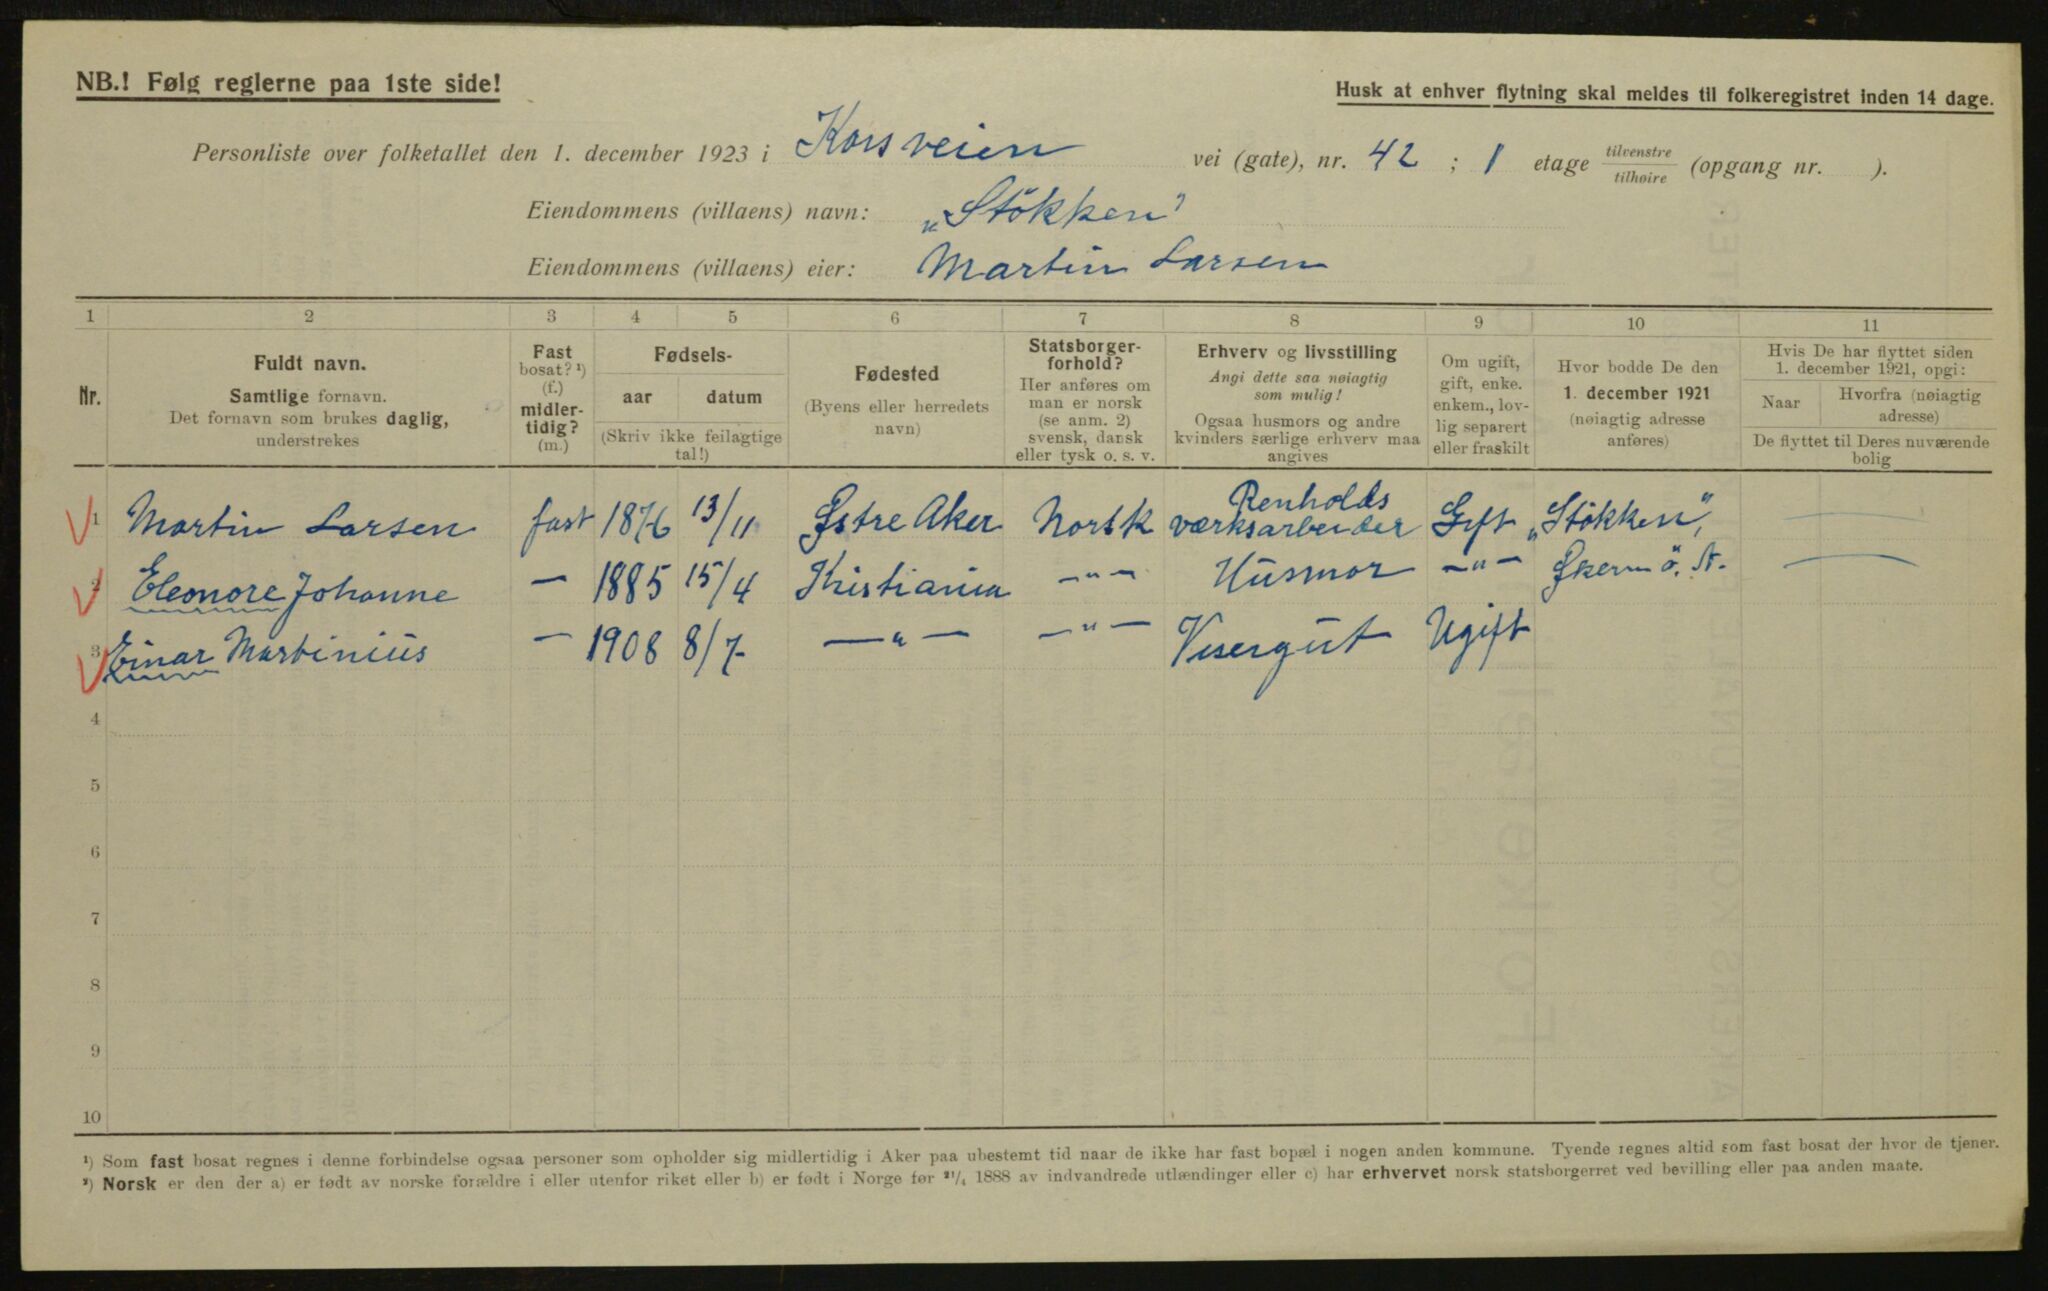 NB.! Følg reglerne paa 1ste side!
Husk at enhver flytning skal meldes til folkeregistret inden 14 dage.
Personliste over folketallet den 1. december 1923 i Korsveien vei (gate), nr. 42 ; 1 etage tilvenstre / tilhøire (opgang nr. ).
Eiendommens (villaens) navn: „Stökken"
Eiendommens (villaens) eier: Martin Larsen
1 2 3 4 5 6 7 8 9 10 11
Nr.
Fuldt navn.
Samtlige fornavn.
Det fornavn som brukes daglig,
understrekes
Fast
bosat? ¹)
(f.)
midler-
tidig?
(m.)
Fødsels-
aar datum
(Skriv ikke feilagtige
tal!)
Fødested
(Byens eller herredets
navn)
Statsborger-
forhold?
Her anføres om
man er norsk
(se anm. 2)
svensk, dansk
eller tysk o. s. v.
Erhverv og livsstilling
Angi dette saa nøiagtig
som mulig!
Ogsaa husmors og andre
kvinders særlige erhverv maa
angives
Om ugift,
gift, enke.
enkem., lov-
lig separert
eller fraskilt
Hvor bodde De den
1. december 1921
(nøiagtig adresse
anføres)
Hvis De har flyttet siden
1. december 1921, opgi:
Naar
Hvorfra (nøiagtig
adresse)
De flyttet til Deres nuværende
bolig
1 Martin Larsen fast 1876 13/11 Østre Aker Norsk Renholds værksarbeider Gift „Stökken",
2 Eleonore Johanne — 1885 15/4 Kristiania —"— Husmor —"— ö. A.
3 Einar Martinius — 1908 8/7 —"— —"— Visergut Ugift
4
5
6
7
8
9
10
¹) Som fast bosat regnes i denne forbindelse ogsaa personer som opholder sig midlertidig i Aker paa ubestemt tid naar de ikke har fast bopæl i nogen anden kommune. Tyende regnes altid som fast bosat der hvor de tjener.
²) Norsk er den der a) er født av norske forældre i eller utenfor riket eller b) er født i Norge før ²¹/₄ 1888 av indvandrede utlændinger eller c) har erhvervet norsk statsborgerret ved bevilling eller paa anden maate.